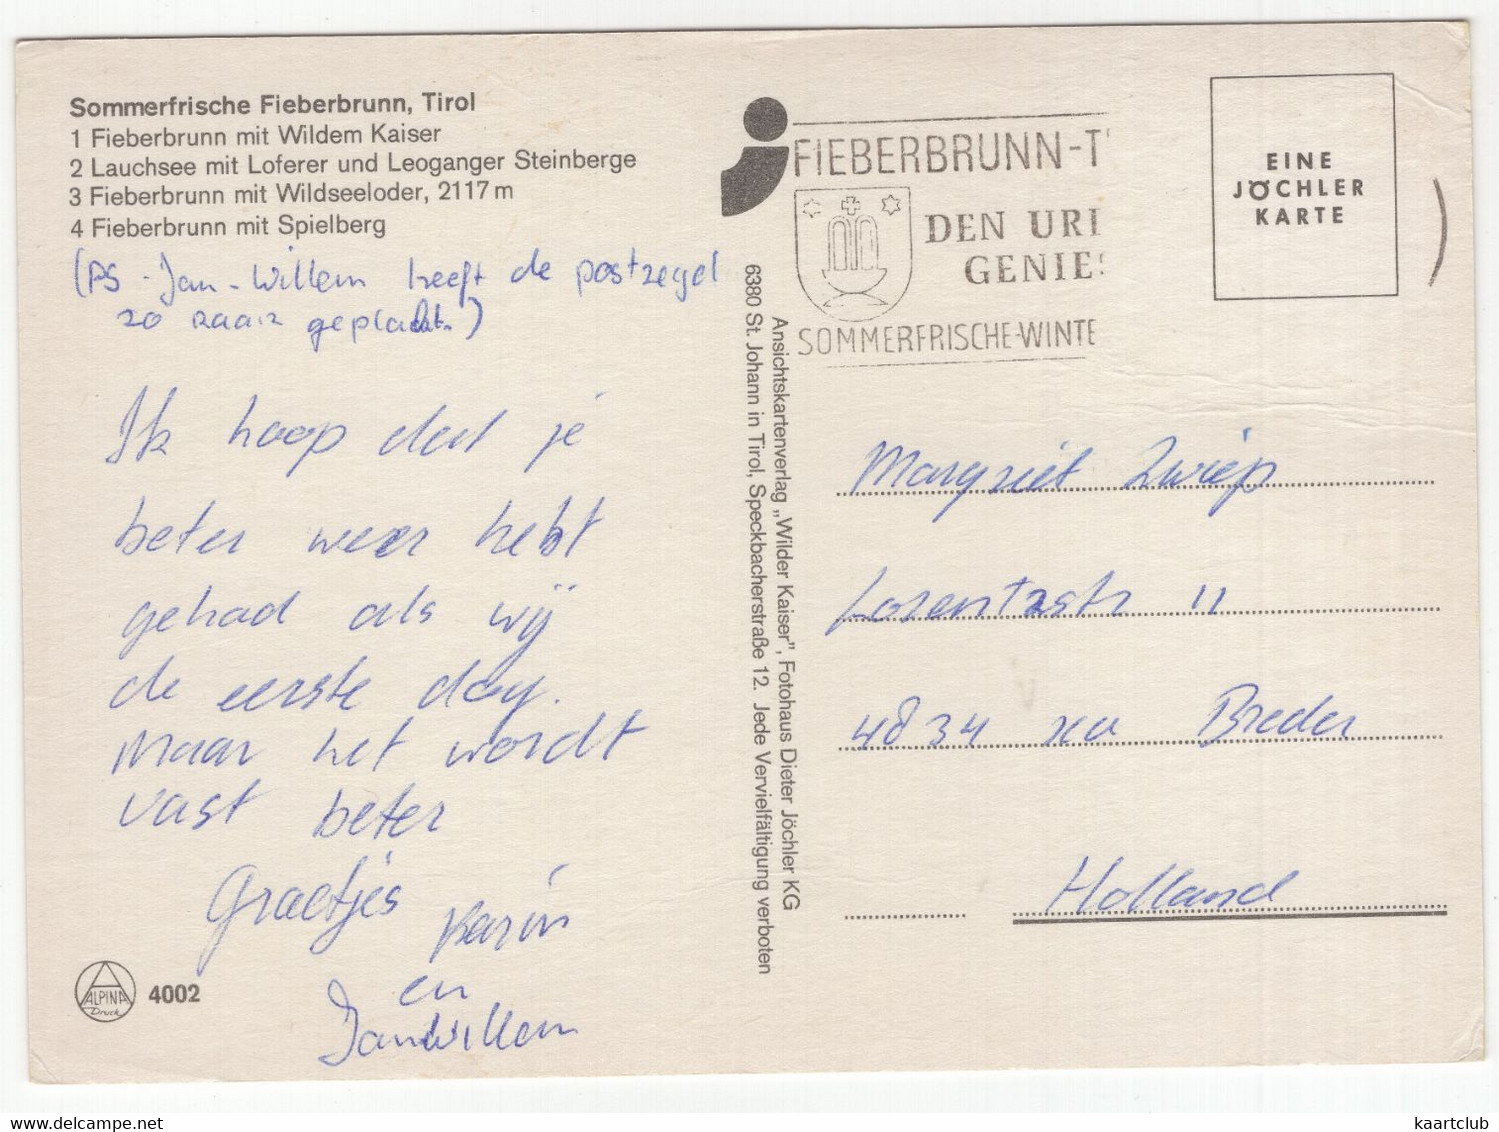 Sommerfrische Fieberbrunn, Tirol
1 Fieberbrunn mit Wildem Kaiser
2 Lauchsee mit Loferer und Leoganger Steinberge
3 Fieberbrunn mit Wildseeloder, 2117 m
4 Fieberbrunn mit Spielberg
(PS - Jan-Willem heeft de postzegel
zo raar geplackt.)
Ik hoop dat je
beter weer hebt
gehad als wij
de eerste dag.
Maar het wordt
vast beter
Groetjes Karin
en
Jan Willem
ALPINA
Druck
4002
FIEBERBRUNN-T
DEN URL
GENIES
SOMMERFRISCHE-WINTE
Ansichtskartenverlag „Wilder Kaiser", Fotohaus Dieter Jöchler KG
6380 St. Johann in Tirol, Speckbacherstraße 12. Jede Vervielfältigung verboten
EINE
JÖCHLER
KARTE
Margriet Zwiep
Lorentzstr 11
4834 xa Breda
Holland
delcampe.net
kaartclub